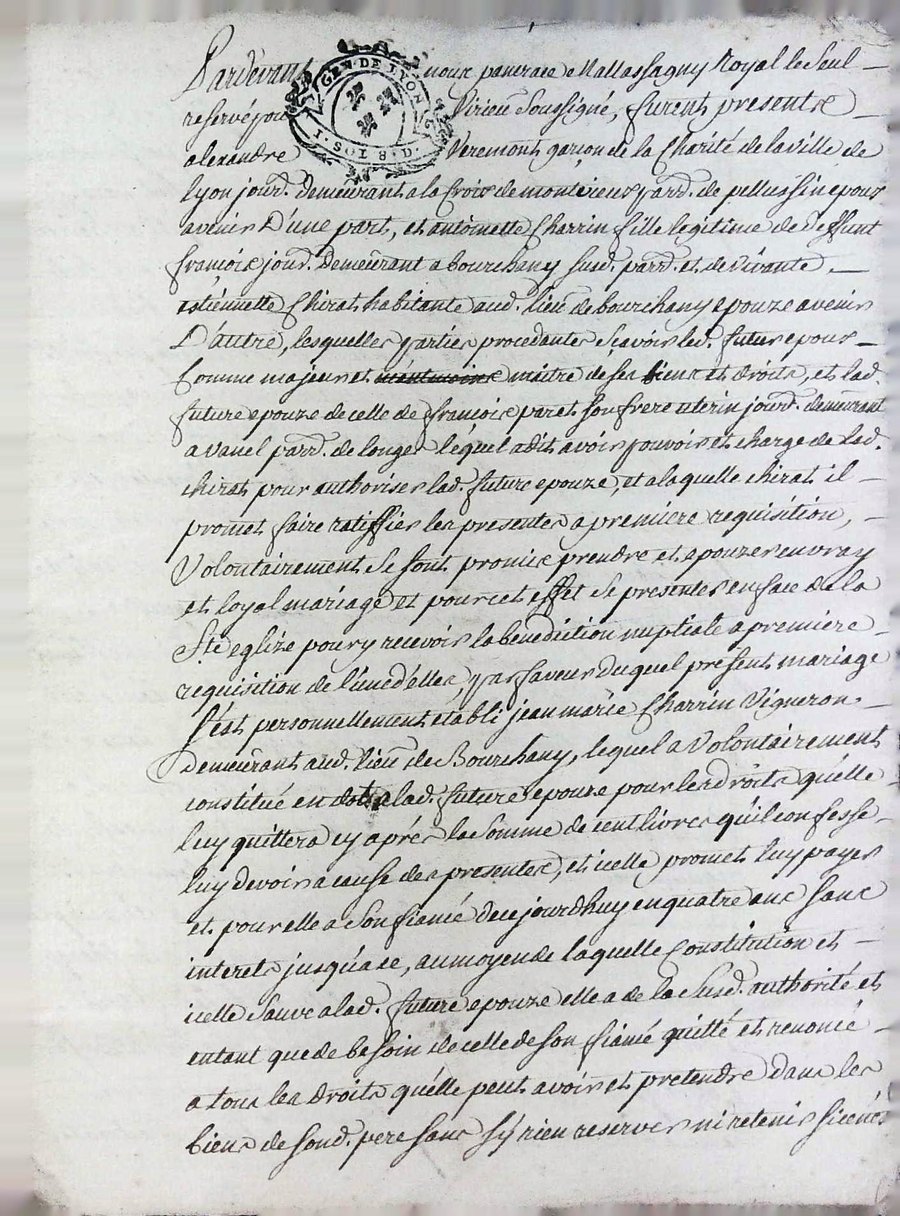 Pardevant nore pancrace Mallassagny Royal le seul
GEN. DE LYON
I. SOL 8. D.
reservé pour Virieu Sousigné, furent presents
alexandre Veremont garçon de la Charité de la ville de
Lyon jourd. demeurant a la Croix de montvieux parr. de pellussin epoux
avenir D'une part, et antoinette Charrin fille legitime de deffunt
françois jour. demeurant a bourchany susd. parr. et de vivante
estiennette Chirat habitante aud. lieu de bourchany epouze avenir
D'autre, lesquelles parties procedantes scavoir led. futur epoux
Comme majeur et maitre de ses biens et droits, et lad.
future epouze de celle de françois paret son frere uterin jourd. demeurant
a vanel parr. de longes lequel a dit avoir pouvoir et charge de lad.
chirat pour authoriser lad. future epouze, et a laquelle chirat il
promet faire ratiffier les presentes a premiere requisition,
Volontairement se sont promis prendre et epouzer en vray
et loyal mariage et pour cet effet se presenter en face de la
Ste eglize pour y recevoir la benediction nuptiale a premiere
requisition de l'une d'elles, par faveur duquel present mariage
s'est personnellement etabli jean marie Charrin Vigneron
demeurant aud. lieu de Bourchany, lequel a Volontairement
constitué en dot a lad. future epouze pour les droits qu'elle
luy quittera cy aprés la somme de cent livres qu'il confesse
luy devoir a cause des presentes, et icelle promet luy payer
et pour elle a son fiancé de ce jourdhuy en quatre ans sans
interets jusqu'a ce, au moyen de laquelle Constitution et
icelle sauve a lad. future epouze elle a de la susd. authorité et
entant que de besoin de celle de son fiancé quitté et renoncé
a tous les droits qu'elle peut avoir et pretendre dans les
biens de sond. pere sans s'y rien reserver ni retenir si ce n'est